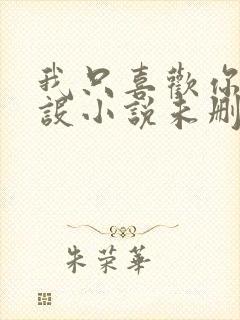 我只喜歡你
設小說未刪
朱荣華